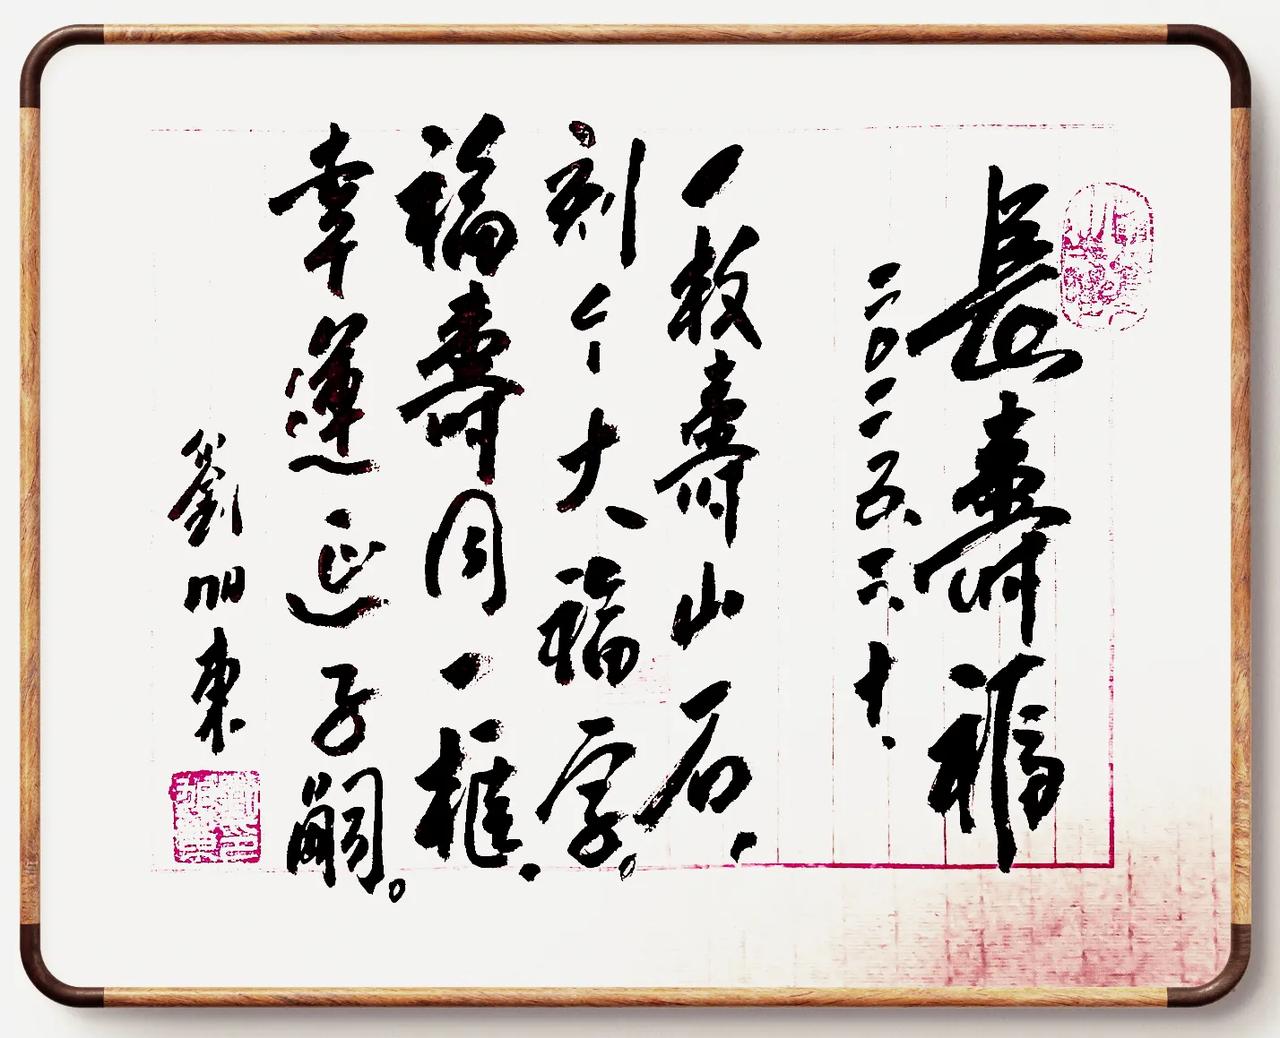 長壽福
二〇二五.二.十.
一枚壽山石,
刻个大福字。
福壽同一框,
幸運延子嗣。
劉明東